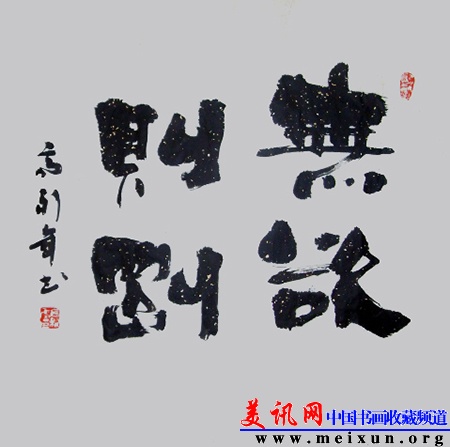 無欲
則剛
美讯网 中国书画收藏频道
www.meixun.org